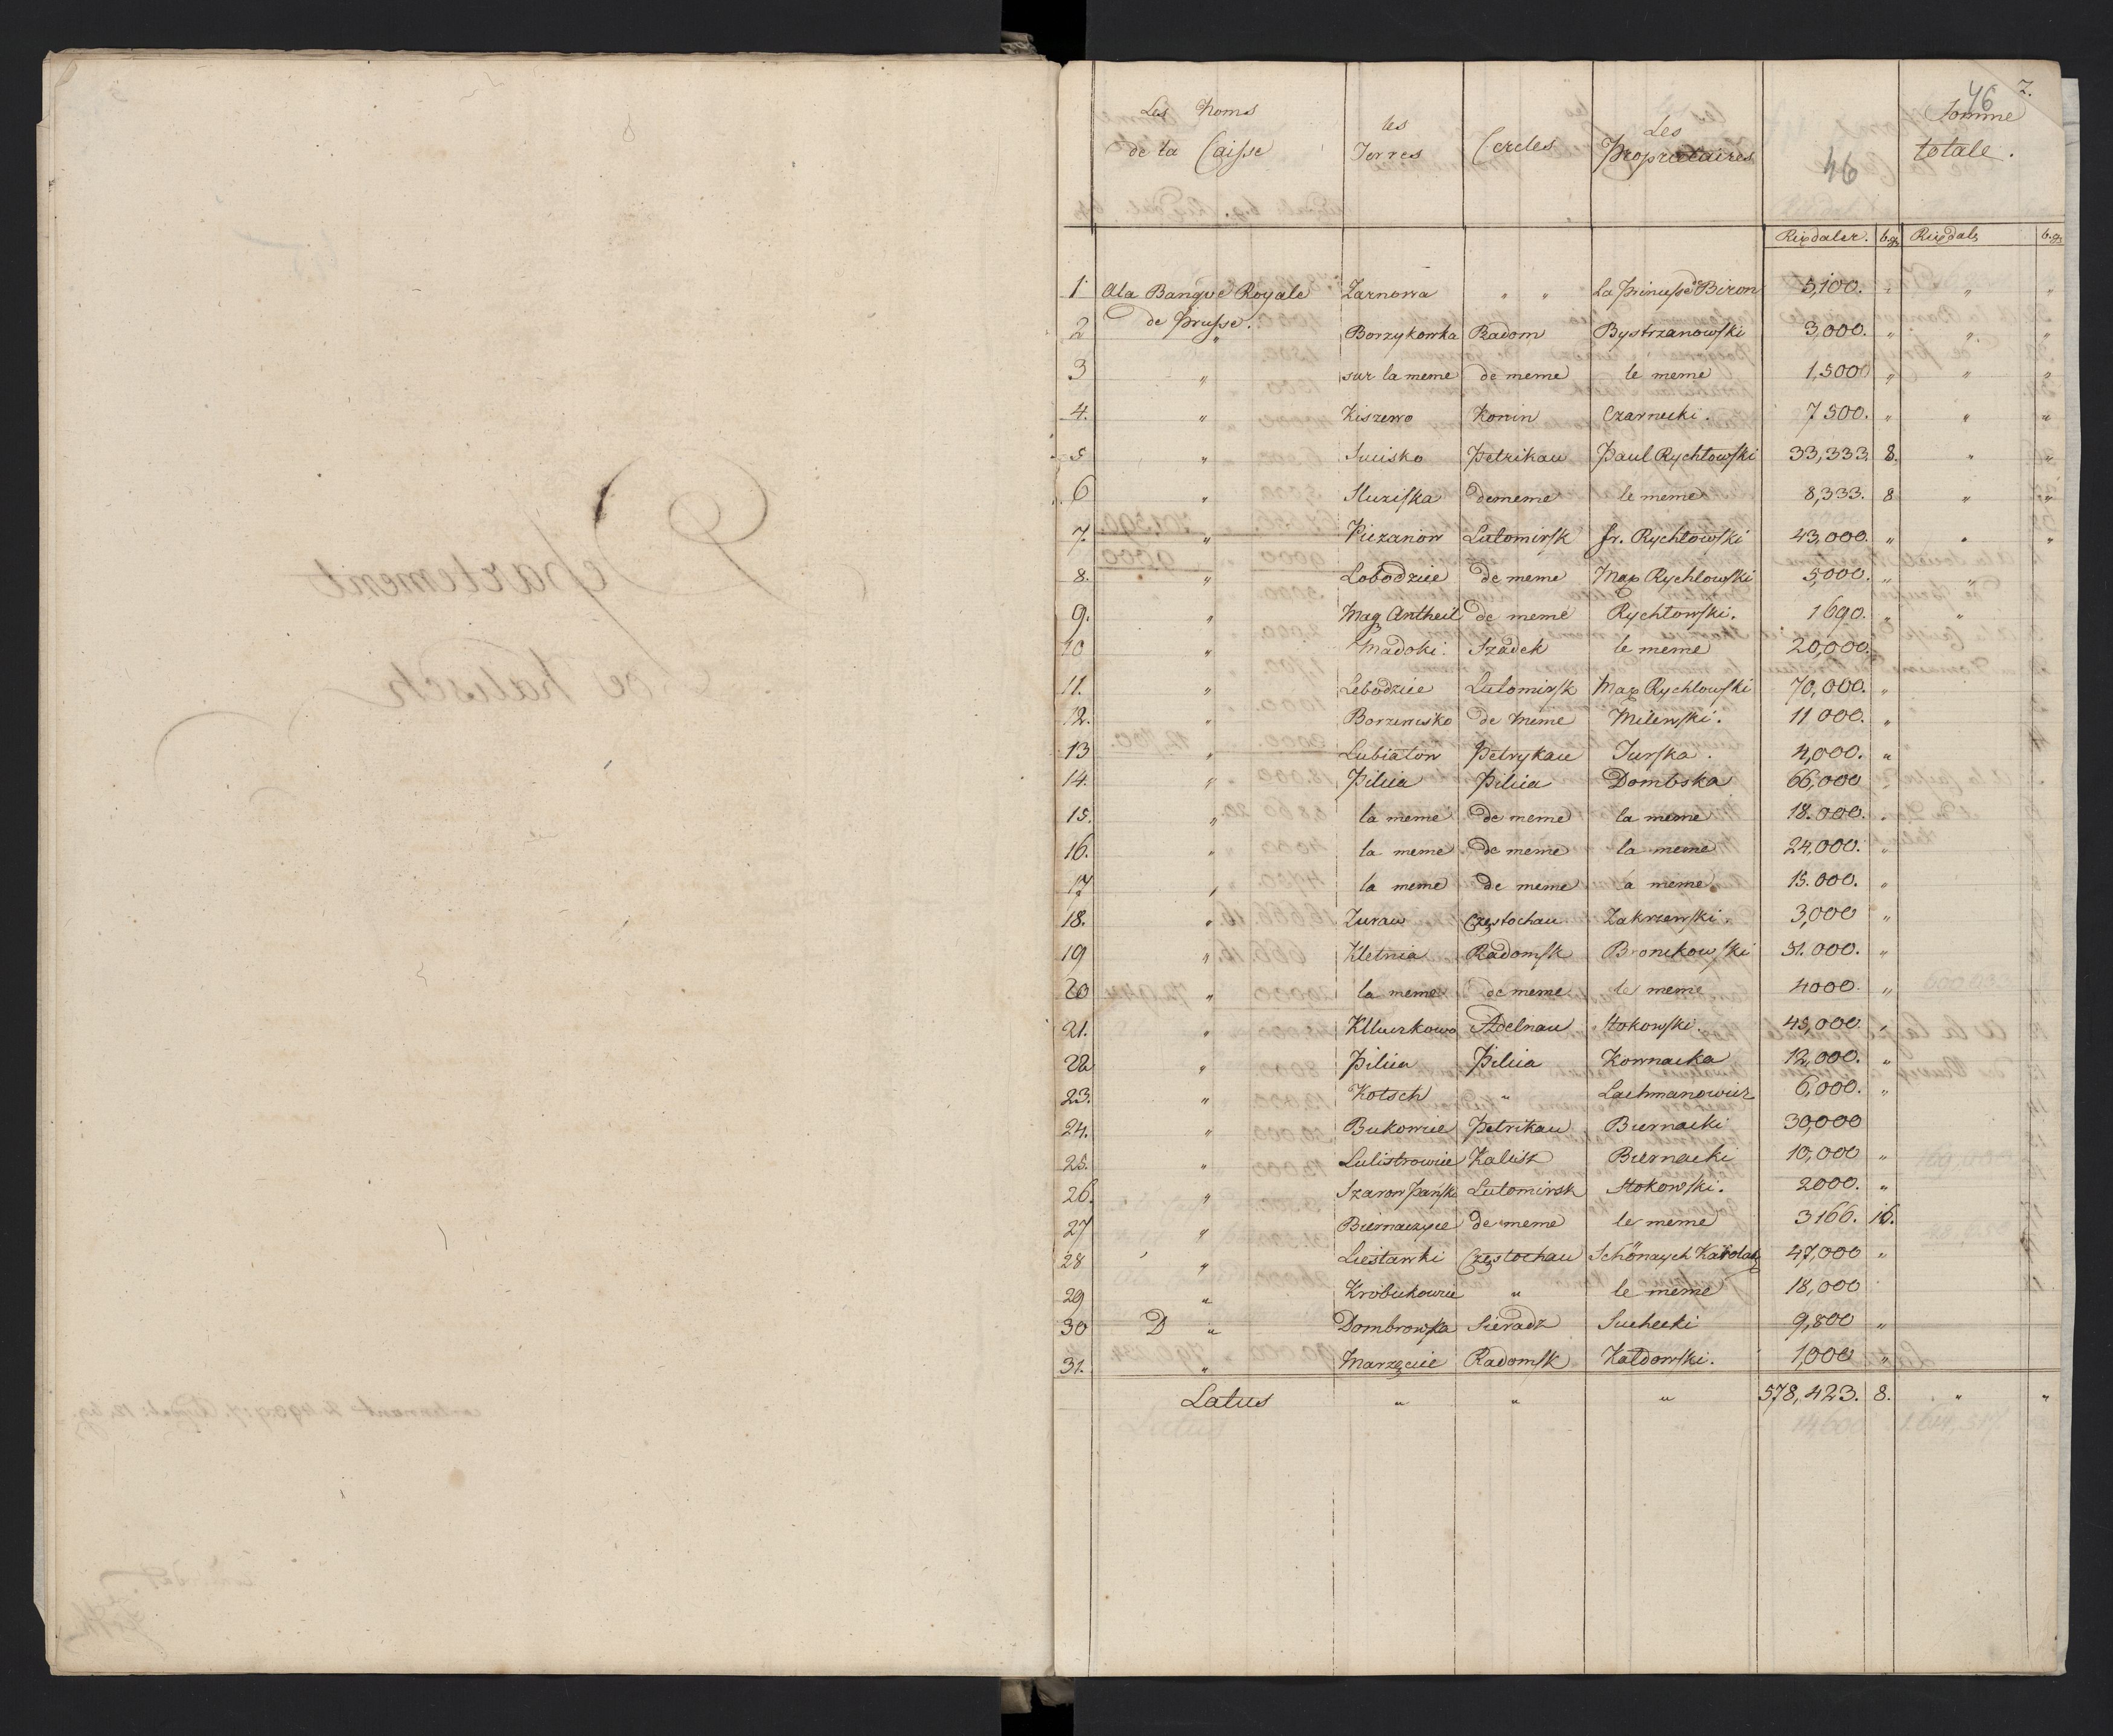 46 2.
Les Noms de la Caisse | les Terres | Cercles | Les Propriétaires | 46 | Somme totale.
Rixdaler. | b.g. | Rixdal. | b.g.
1 | A la Banque Royale | Zarnowa | " " | La Princesse de Biron | 5,100. | " | " | "
2 | de Prusse. " | Borzykowka | Radom | Bystrzanowski | 3,000. | " | " | "
3 | " | sur la meme | de meme | le meme | 1,500 | " | " | "
4. | " | Kiszewo | Konin | Czarnecki. | 7500. | " | " | "
5 | " | Sucisko | Petrikau | Paul Rychlowski | 33,333. | 8. | " | "
6 | " | Sluziska | de meme | le meme | 8,333. | 8 | " | "
7. | " | Piezanow | Lutomirsk | fr. Rychlowski | 43,000. | " | " | "
8. | " | Lobodzice | de meme | Max Rychlowski | 5,000. | " | "
9. | " | Mag Antheil | de meme | Rychlowski. | 1690. | " | "
10 | " | Madoki. | Szadek | le meme | 20,000.
11. | " | Lebodzice | Lutomirsk | Max Rychlowski | 70,000. | "
12. | " | Borzewisko | de meme | Milewski. | 11000. | "
13 | " | Lubiatow | Petrykau | Jurska. | 4,000. | "
14. | " | Pilica | Pilica | Dombska | 66,000 | "
15. | " | la meme | de meme | la meme | 18.000. | "
16. | " | la meme | de meme | la meme | 24,000. | "
17 | " | la meme | de meme | la meme | 15.000. | "
18. | " | Zuraw | Częstochau | Zakrzewski. | 3,000 | "
19 | " | Kletnia | Radomsk | Bronikowski | 31.000. | "
20 | " | la meme | de meme | le meme | 4000. | "
21. | " | Klluczkowo | Adelnau | Stokowski. | 45,000. | "
22 | " | Pilica | Pilica | Kownacka | 12,000. | "
23. | " | Kotsch | " | Lachmanowicz | 6,000. | "
24. | " | Bukowie | Petrikau | Biernacki | 30,000
25. | " | Lulistrowice | Kalisz | Biernacki | 10,000 | "
26. | " | Szarow Pański | Lutomirsk | Stokowski. | 2000. | "
27 | " | Biernaczyce | de meme | le meme | 3166. | 16.
28 | " | Liestawki | Częstochau | Schönaych Karolatz | 47,000 | "
29 | " | Krobickowice | " | le meme | 18,000
30 | D " | Dombrowska | Sieradz | Suchecki | 9,800 | "
31. | " | Marzęcice | Radomsk | Kaldowski. | 1,000 | "
Latus | " | " | " | 578,423. | 8. | " | "